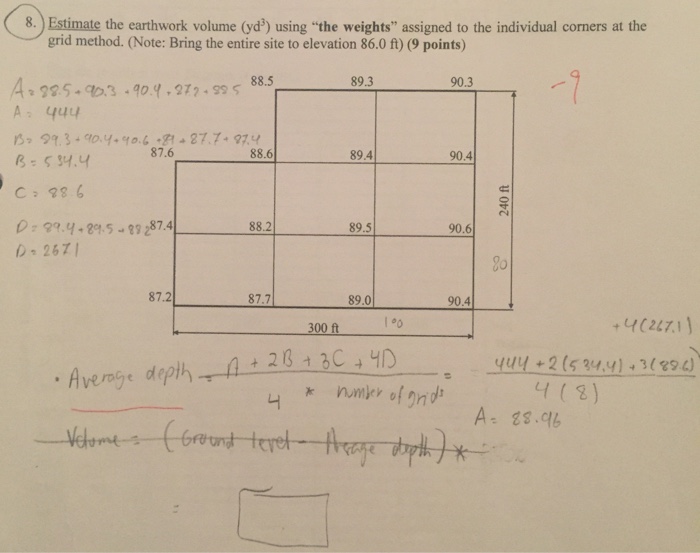 8. Estimate the earthwork volume (yd³) using “the weights” assigned to the individual corners at the
grid method. (Note: Bring the entire site to elevation 86.0 ft) (9 points)
-9
88.5 89.3 90.3
A = 88.5 + 90.3 + 90.4 + 87.2 + 88.5
A = 444
B = 89.3 + 90.4 + 90.6 + 89 + 87.7 + 87.4
87.6 88.6 89.4 90.4
B = 534.4
C = 88.6
240 ft
D = 89.4 + 89.5 + 88.2
87.4 88.2 89.5 90.6
D = 267.1
80
87.2 87.7 89.0 90.4
300 ft 100
+ 4(267.1)
• Average depth = A + 2B + 3C + 4D = 444 + 2(534.4) + 3(88.6)
4 * number of grids 4(8)
A = 88.96
Volume = (Ground level - Average depth) *
=